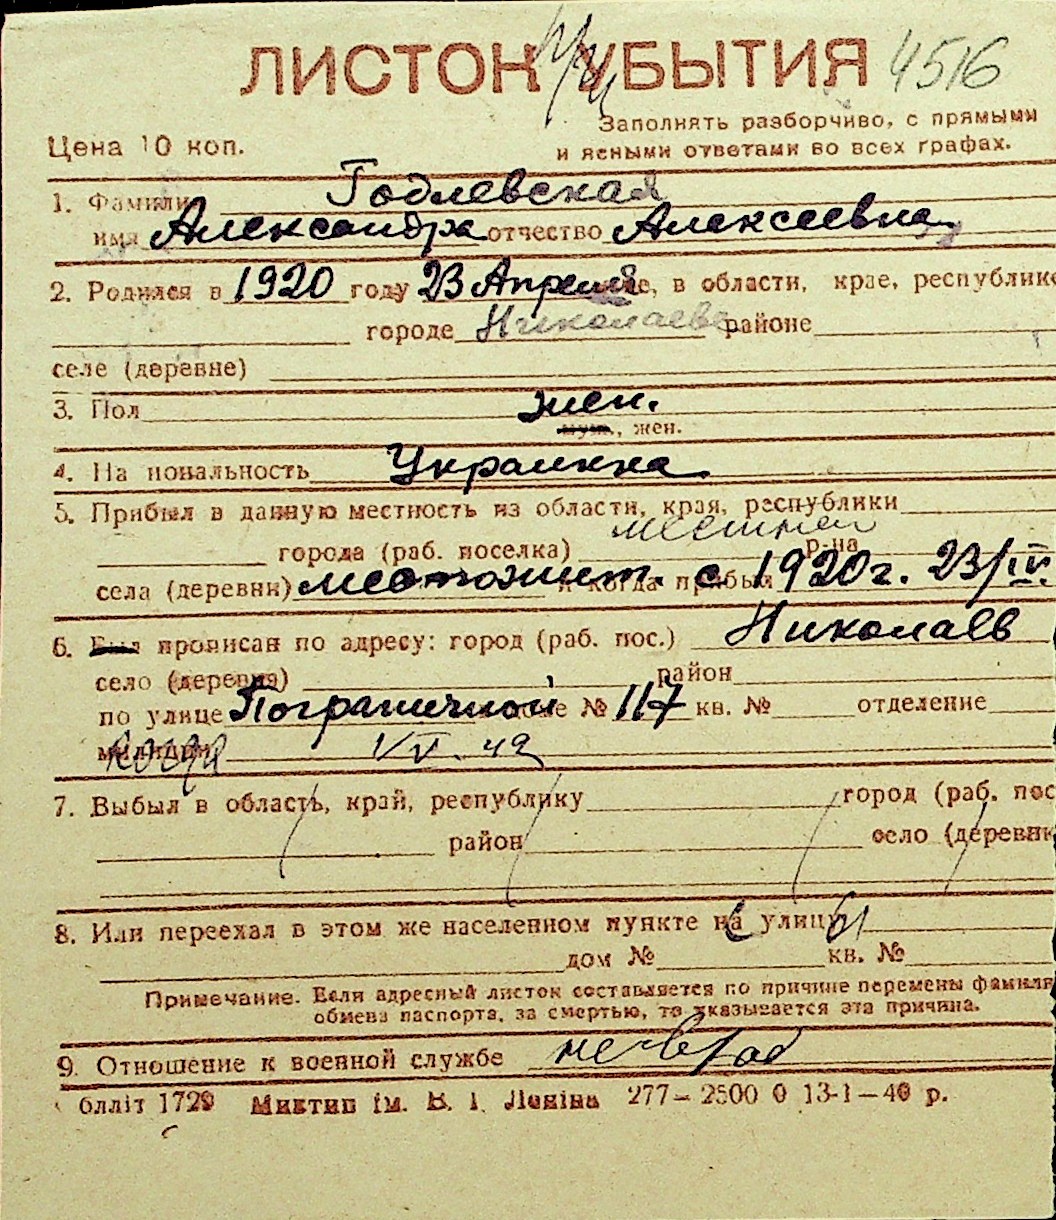 ЛИСТОК УБЫТИЯ 4516
Заполнять разборчиво, с прямыми
Цена 10 коп. и ясными ответами во всех графах.
1. Фамилия Годлевская
имя Александра отчество Алексеевна
2. Родился в 1920 году 23 Апреля, в области, крае, республике
городе Николаеве районе
селе (деревне)
3. Пол жен.
муж., жен.
4. Национальность Украинка
5. Прибыл в данную местность из области, края, республики
города (раб. поселка) местная р-на
села (деревни) местожит. с 1920 г. 23/IV.
6. Был прописан по адресу: город (раб. пос.) Николаев
село (деревня) район
по улице Пограничной доме № 117 кв. № отделение
милиции когда
7. Выбыл в область, край, республику город (раб. пос
район село (деревн
8. Или переехал в этом же населенном пункте на улицу
дом № кв. №
Примечание. Если адресный листок составляется по причине перемены фамили
обмена паспорта, за смертью, то указывается эта причина.
9. Отношение к военной службе
блліт 1729 Миктип ім. В. І. Леніна 277—2500 0 13-1—40 р.